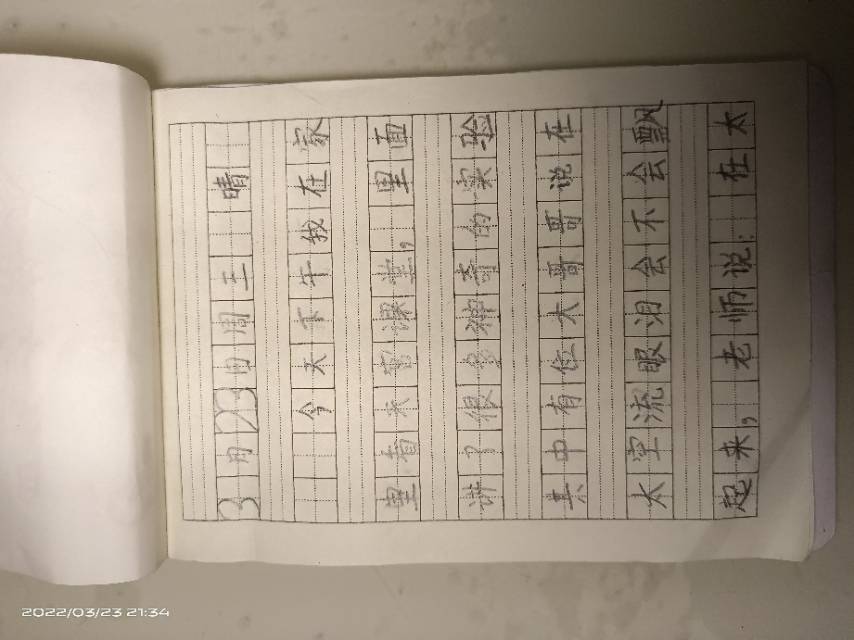 3月23日周三 晴
今天下午我在家
里看天宫课堂,里面
讲了很多神奇的实验
其中有位大哥哥说在
太空流眼泪会不会飘
起来,老师说:在太
2022/03/23 21:34